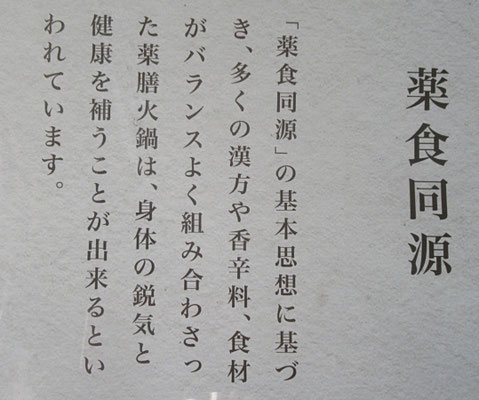 薬食同源
「薬食同源」の基本思想に基づ
き、多くの漢方や香辛料、食材
がバランスよく組み合わさっ
た薬膳火鍋は、身体の鋭気と
健康を補うことが出来るとい
われています。